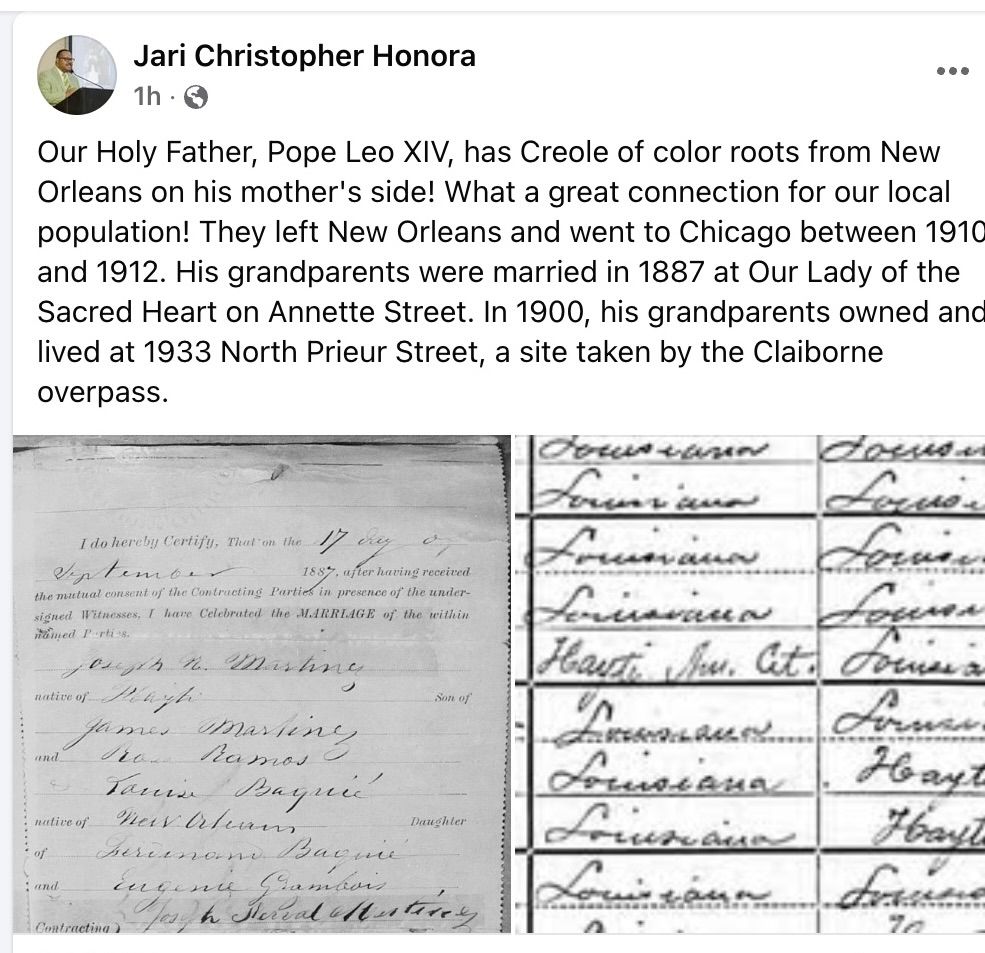 Jari Christopher Honora
1h ·
Our Holy Father, Pope Leo XIV, has Creole of color roots from New
Orleans on his mother's side! What a great connection for our local
population! They left New Orleans and went to Chicago between 1910
and 1912. His grandparents were married in 1887 at Our Lady of the
Sacred Heart on Annette Street. In 1900, his grandparents owned and
lived at 1933 North Prieur Street, a site taken by the Claiborne
overpass.
I do hereby Certify, That on the 17 day of
September 1887, after having received
the mutual consent of the Contracting Parties in presence of the under-
signed Witnesses, I have Celebrated the MARRIAGE of the within
named
Joseph N. Martinez
native of Hayti Son of
James Martinez
and Ramos
Louise Baquié
native of New Orleans Daughter
of Ferdinand Baquié
and Eugenie Grambois
Contracting)
Louisiana
Louisiana
Louisiana
Louisiana
Hayti Am. Cit. Louisia
Louisiana
Louisiana Hayt
Louisiana Hayt
Louisiana